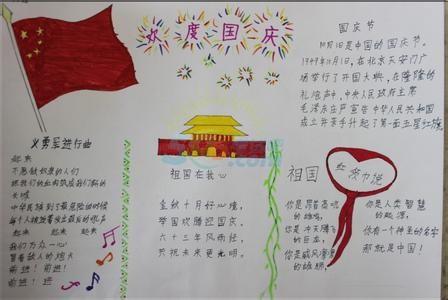 欢度国庆
国庆节
10月1日是中国的国庆节。
1949年10月1日,在北京天安门广
场举行了开国大典,在隆隆的
礼炮声中,中央人民政府主席
毛泽东庄严宣告中华人民共和国
成立并亲手升起了第一面五星红旗
义勇军进行曲
起来
不愿做奴隶的人们
把我们的血肉筑成我们新的
长城
中华民族到了最危险的时候
每个人被迫着发出最后的吼声
起来 起来 起来
我们万众一心
冒着敌人的炮火
前进!前进!
前进!进
祖国在我心
金秋十月好心境,
举国欢腾迎国庆。
六十三年风雨径,
共祝未来更光明。
祖国
红领巾说
你是昂首高吭
的雄鸡,
你是冲天腾飞
的巨龙,
你是威风凛凛
的雄狮,
你是人类智慧
的起源,
你有一个神圣的名字
那就是中国!